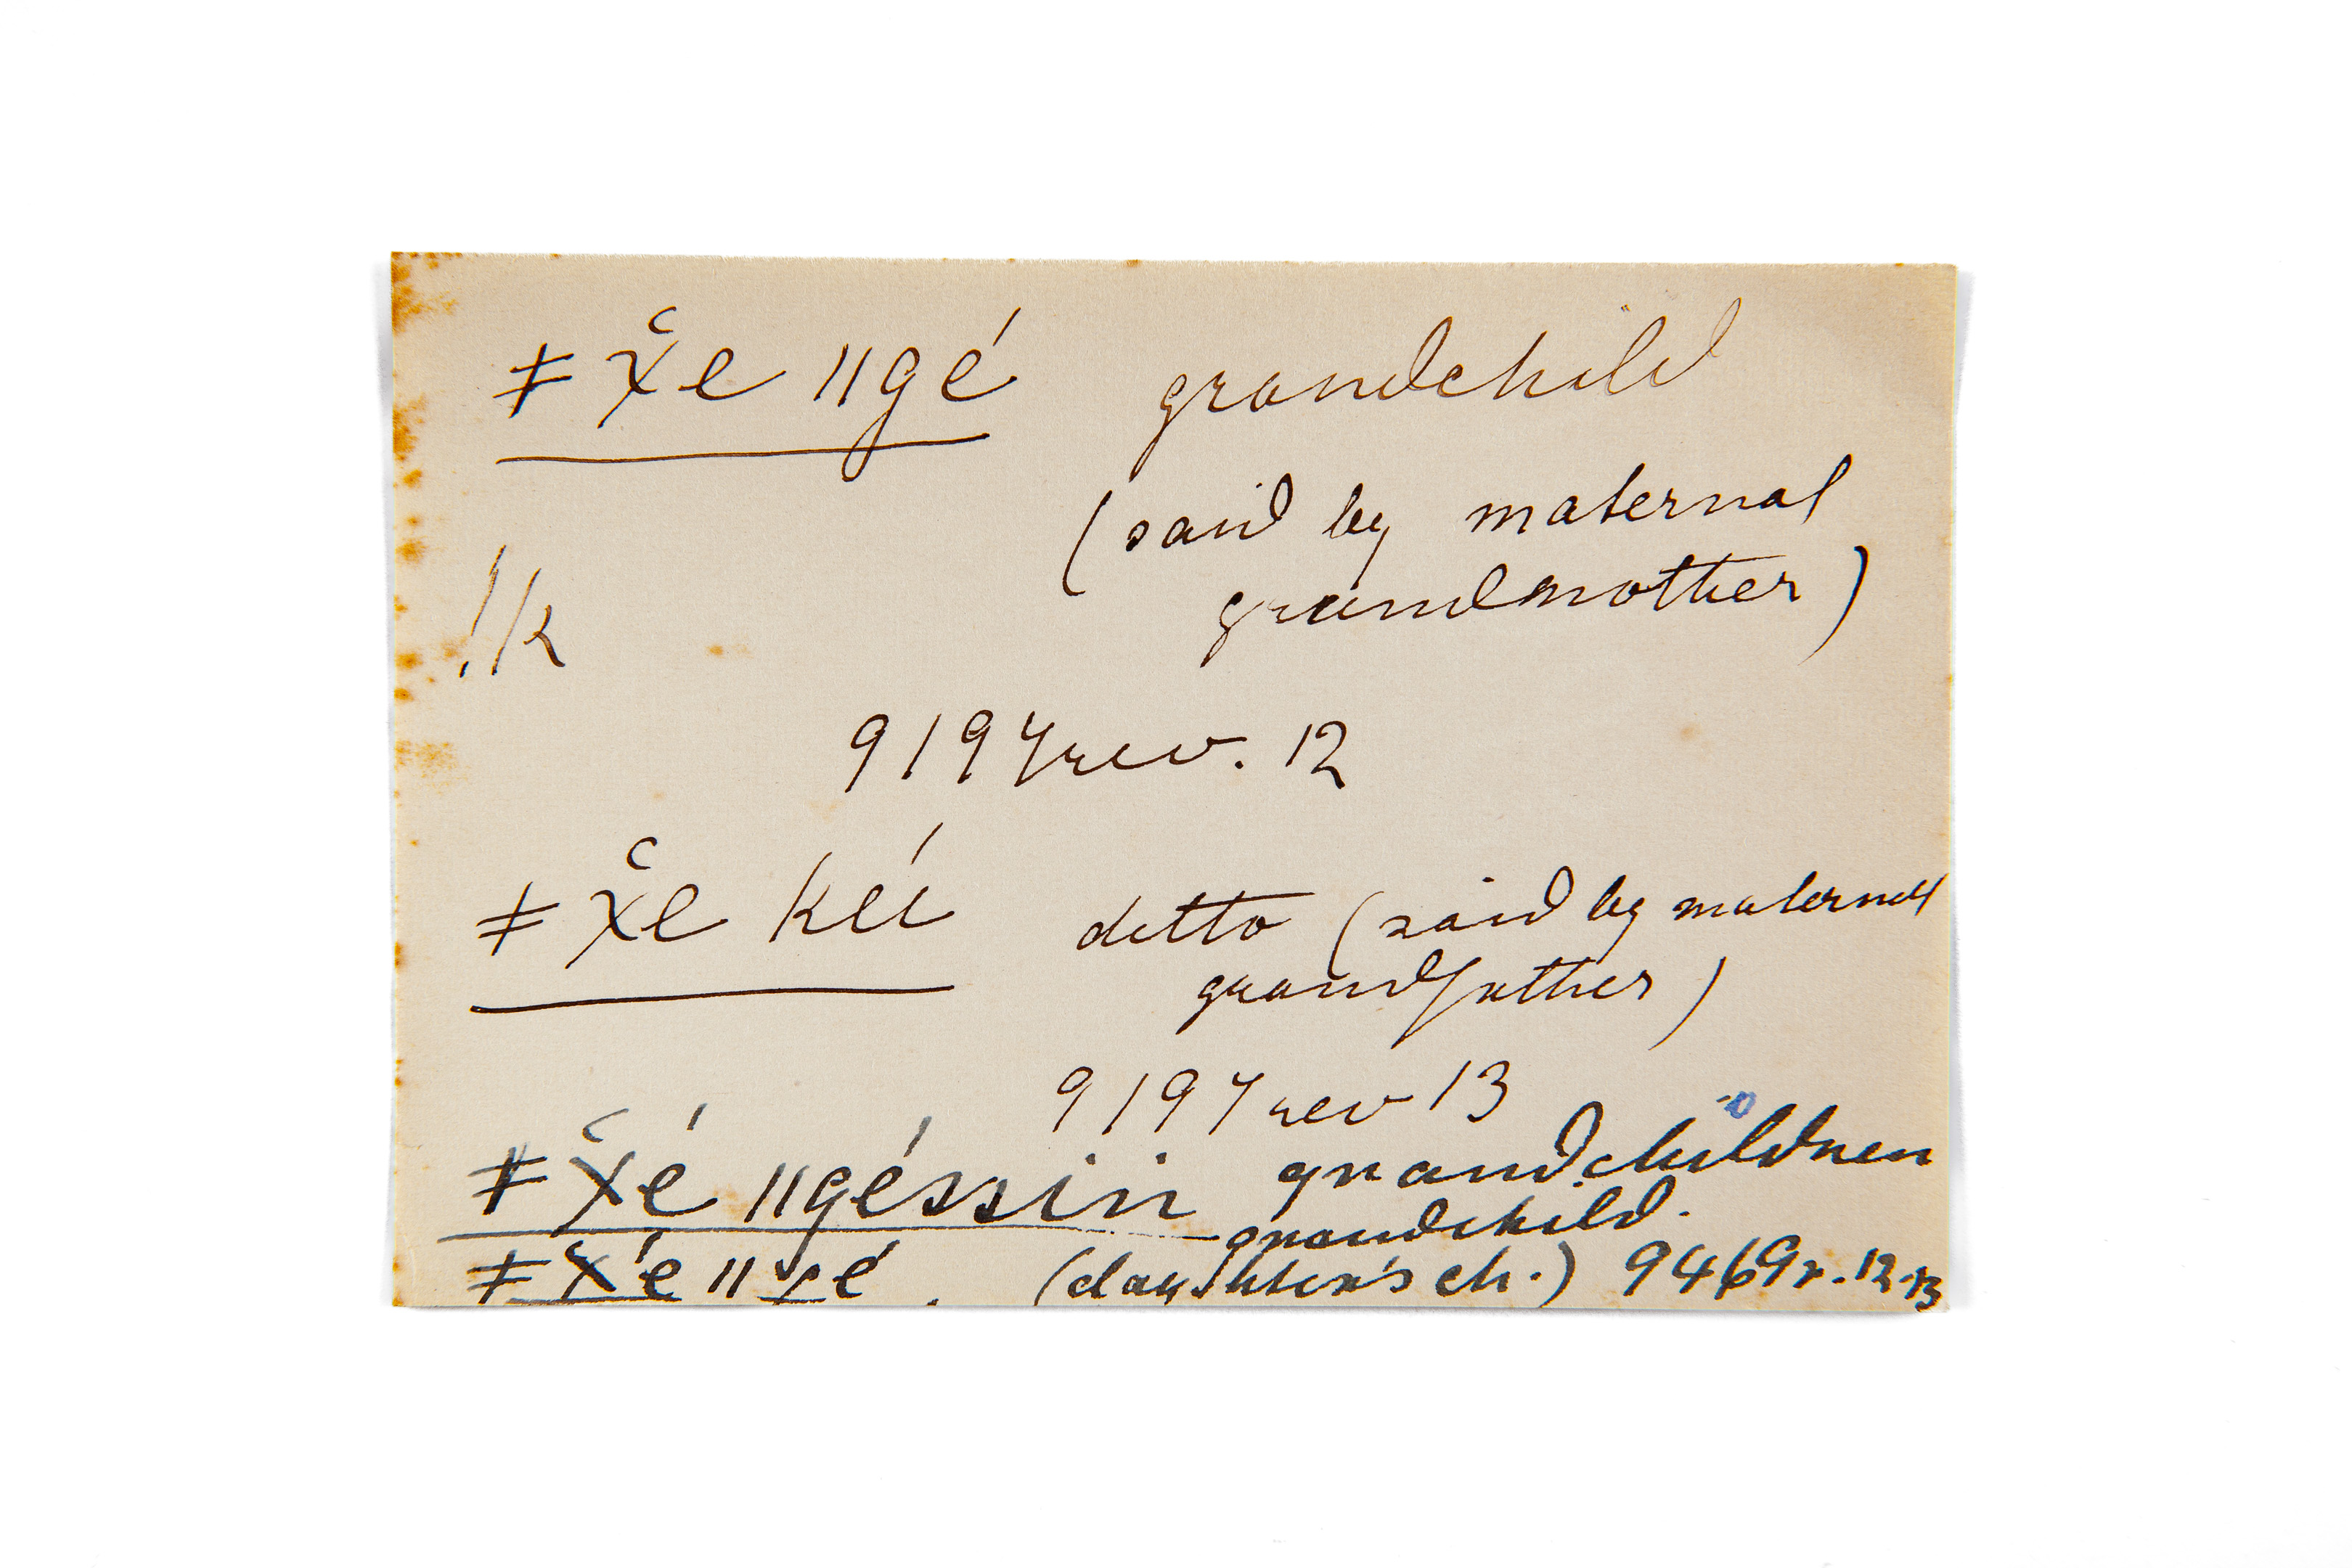 ǂx̌e ǁgé grandchild
(said by maternal
grandmother)
!/k
9197rev. 12
ǂx̌e keí ditto (said by maternal
grandfather)
9197rev 13
ǂx̌é ǁgéssin grandchildren
grandchild.
ǂx̌é ǁ (daughter's ch.) 9469r. 12-13